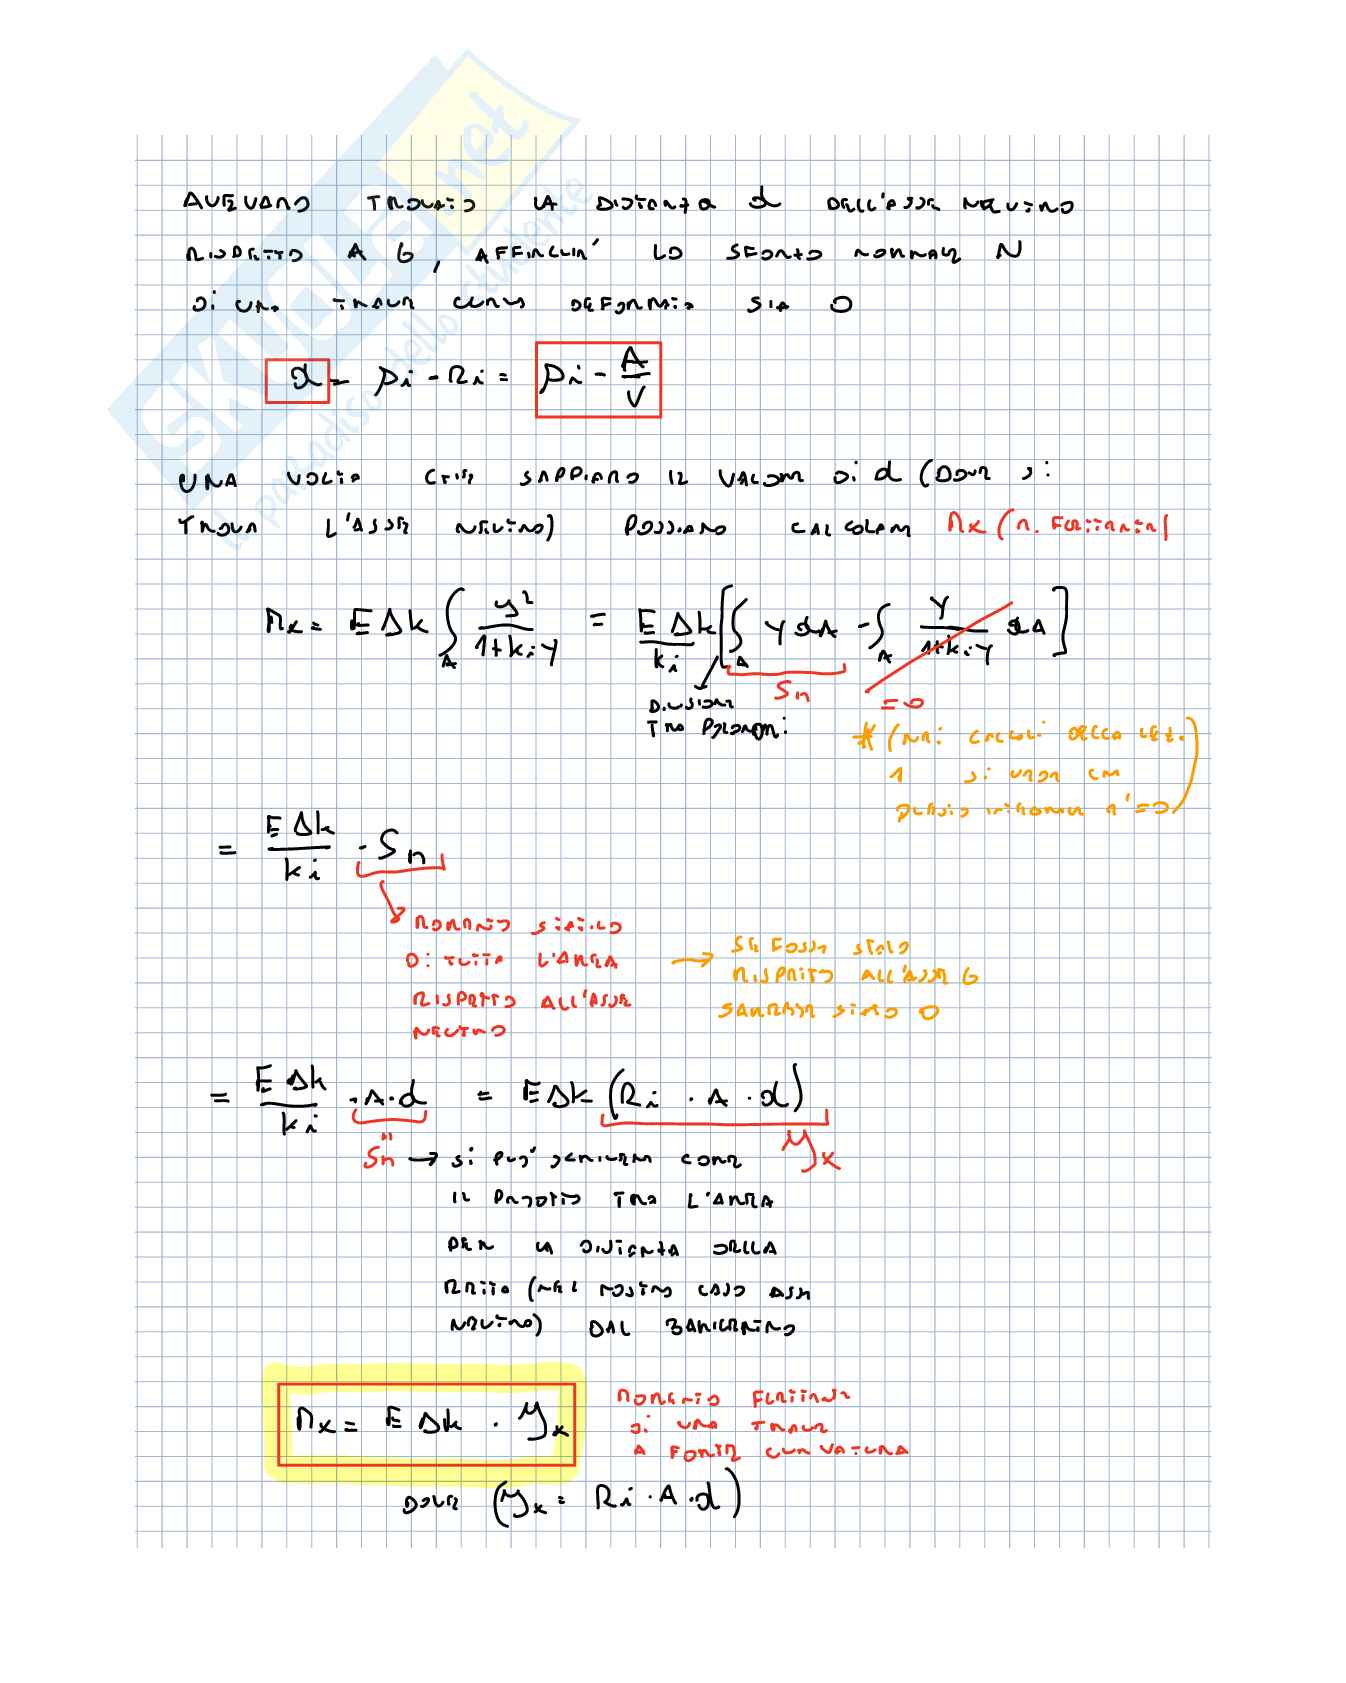 SKUOLA.net
il paradiso dello studente
AVEVAMO TROVATO LA DISTANZA d DELL'ASSE NEUTRO
RISPETTO A G, AFFINCHE' LO SFORZO NORMALE N
DI UNA TRAVE CURVA DEFORMATA SIA 0
d = ρi - Ri = ρi - A/V
UNA VOLTA CHE SAPPIAMO IL VALORE DI d (DOVE SI
TROVA L'ASSE NEUTRO) POSSIAMO CALCOLARE Mx (M. FLETTENTE)
Mx = EΔk ∫A y²/(1+kiy) = EΔk/ki [∫A y dA - ∫A y/(1+kiy) dA]
Sn
= 0
DIVISIONE
TRA POLINOMI
* (NEI CALCOLI DELLA LEZ.
1 SI VEDE CHE
QUESTO INTEGRALE n' = 0)
= EΔk/ki · Sn
MOMENTO STATICO
DI TUTTA L'AREA
RISPETTO ALL'ASSE
NEUTRO
→ SE FOSSE STATO
RISPETTO ALL'ASSE G
SAREBBE STATO 0
= EΔk/ki · A·d = EΔk (Ri · A · d)
Sn → SI PUO' SCRIVERE COME
yx
IL PRODOTTO TRA L'AREA
PER LA DISTANZA DELLA
RETTA (NEL NOSTRO CASO ASSE
NEUTRO) DAL BARICENTRO
Mx = EΔk · yx
MOMENTO FLETTENTE
DI UNA TRAVE
A FORTE CURVATURA
DOVE (yx = Ri · A · d)